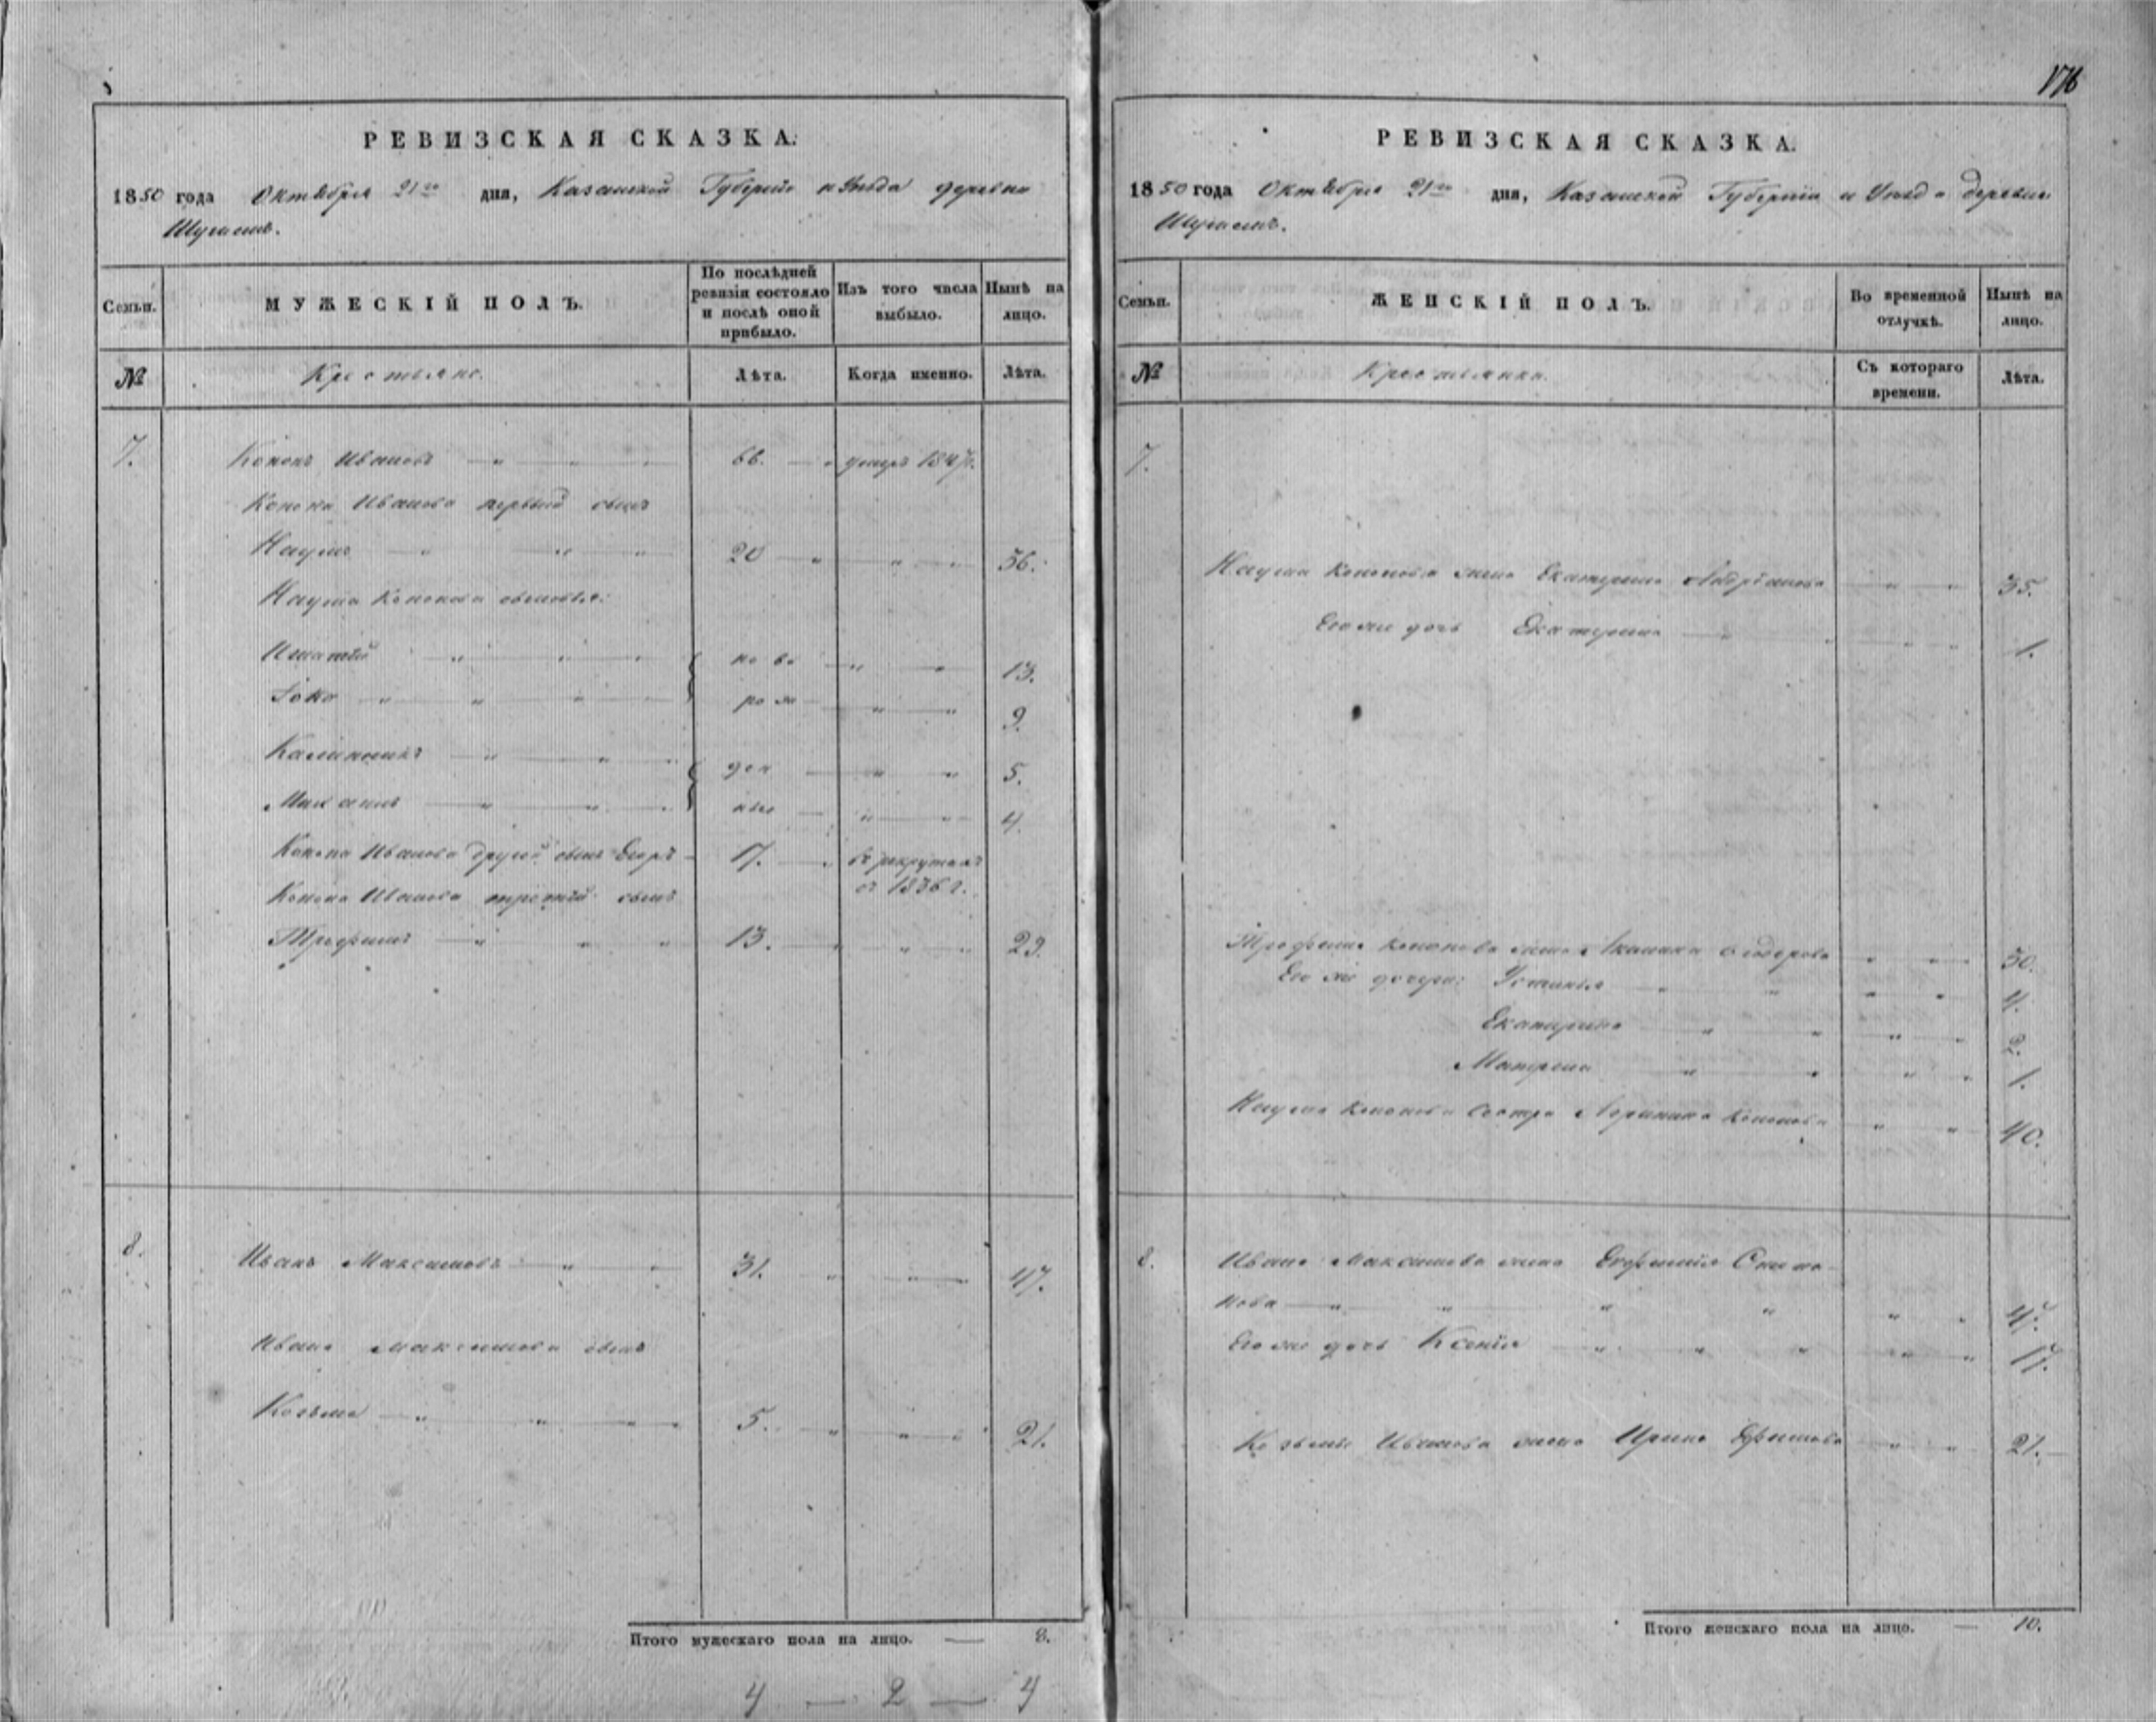 РЕВИЗСКАЯ СКАЗКА.
1850 года Октября 21го дня, Казанской Губернiи и Уѣзда деревни
Семьи.
МУЖЕСКІЙ ПОЛЪ.
По послѣдней ревизіи состояло и послѣ оной прибыло.
Изъ того числа выбыло.
Нынѣ на лицо.
№
Крестьяне.
Лѣта.
Когда именно.
Лѣта.
7. Кононъ Ивановъ 66. умеръ 1847г.
Конона Иванова первый сынъ
Наумъ 20 36.
Наума Кононова сыновья:
Игнатiй ново 13.
рож 9.
ден 5.
Максимъ ные 4.
Конона Иванова другой сынъ Егоръ 17. въ рекрутахъ
съ 1836 г.
Конона Иванова третiй сынъ
Трофимъ 13. 29.
8. Иванъ Максимовъ 31. 47.
Ивана Максимова сынъ
Козьма 5. 21.
Итого мужескаго пола на лицо. — 8.
4 — 2 — 4
176
РЕВИЗСКАЯ СКАЗКА.
1850 года Октября 21го дня, Казанской Губернiи и Уѣзда деревни
Семьи.
ЖЕНСКІЙ ПОЛЪ.
Во временной отлучкѣ.
Нынѣ на лицо.
№
Крестьянки.
Съ котораго времени.
Лѣта.
7.
Наума Кононова жена Екатерина 35.
Его же дочь Екатерина 1.
Трофима Кононова жена Сидорова 30.
Его же дочери: Устинья 4.
Екатерина 2.
Матрена 1.
Наума Кононова сестра Кононова 40.
8. Ивана Максимова жена Ефимiя
нова 47.
Его же дочь Ксенiя 17.
Козьмы Иванова жена Ирина Ефимова 21.
Итого женскаго пола на лицо. — 10.